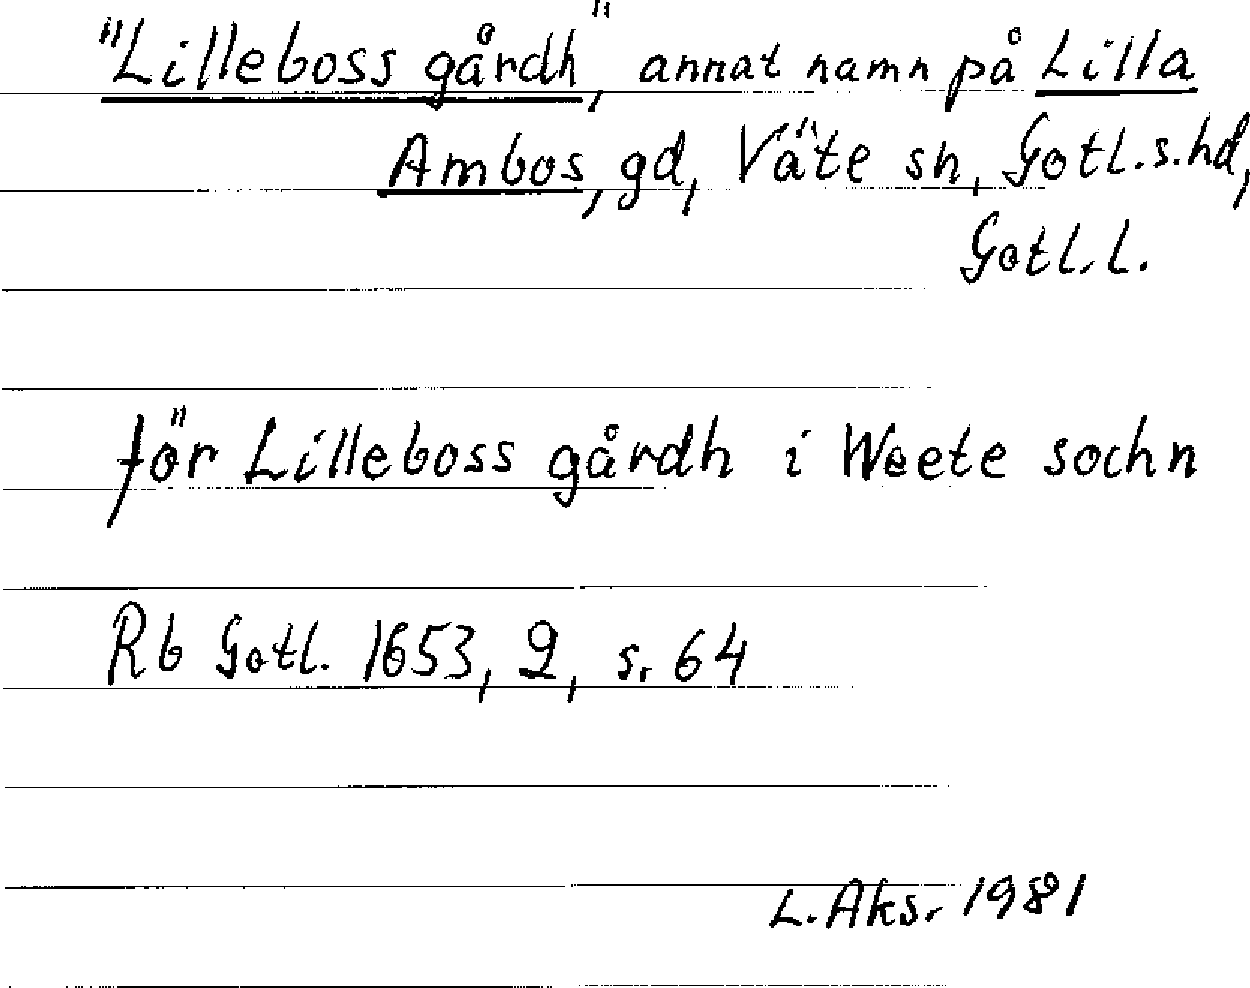 "Lilleboss gårdh", annat namn på Lilla
Ambos, gd, Väte sn, Gotl.s.hd,
Gotl.l.
för Lilleboss gårdh i Weete sochn
Rb Gotl. 1653, 2, s. 64
L. Aks. 1981